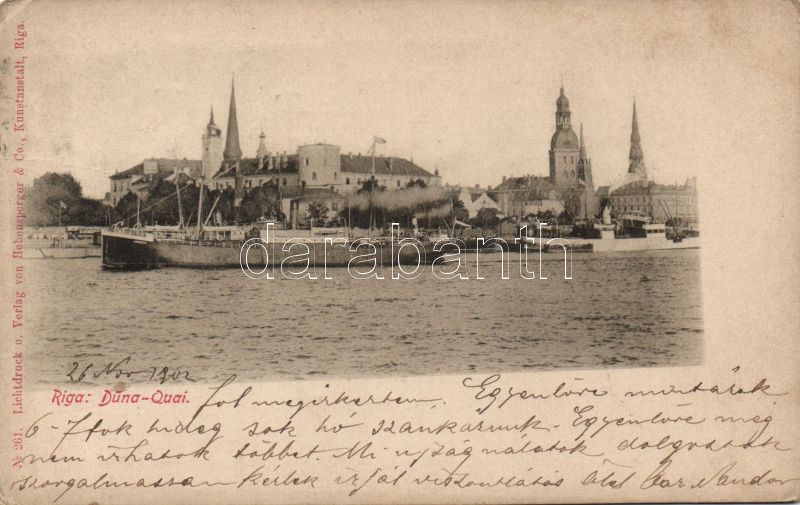 № 261. Lichtdruck u. Verlag von Hebensperger & Co., Kunstanstalt, Riga.
darabanth
26 Nov 1902
Riga: Düna-Quai.
Jol megirkertem. Egyenlöre
6- Itok hideg sok hó szánkázunk. Egyenlöre meg
nem irhatok többet. Mi ujság nálatok, dolgoztok
szorgalmassan kérlek irjál viszontlátás ölel Nandor